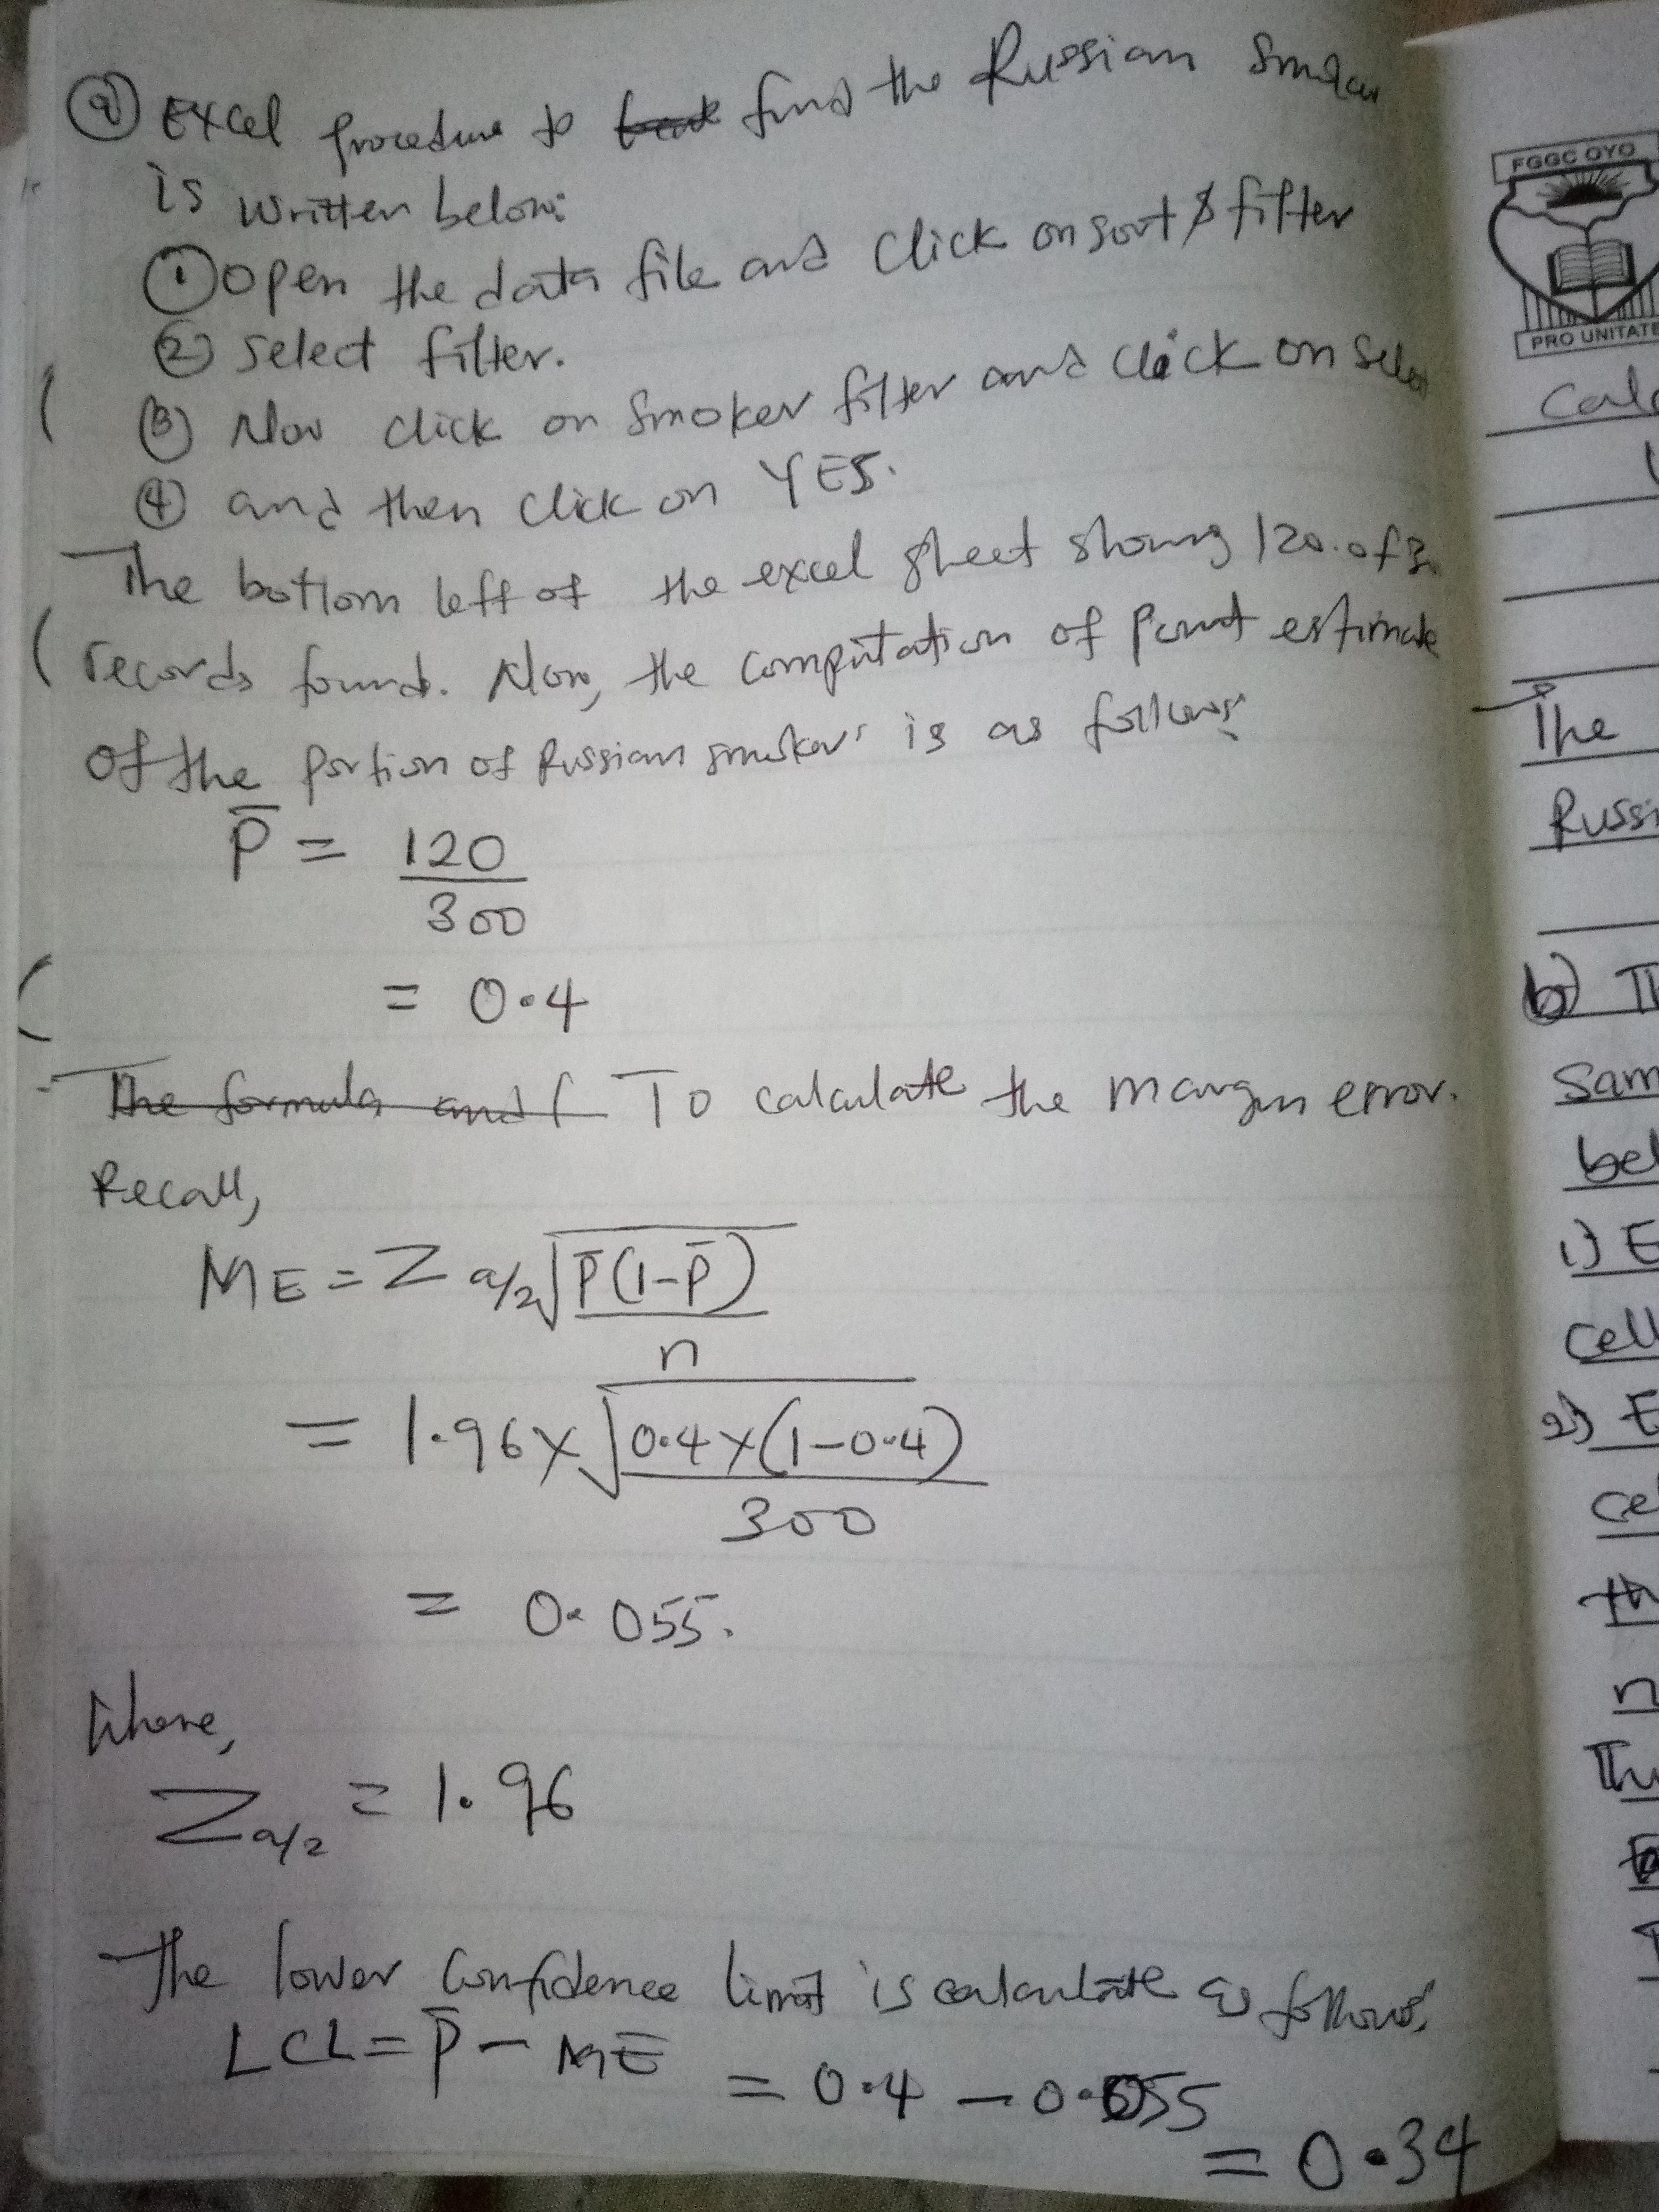 (a) Excel procedure to find the Russian
is written below:
① Open the data file and click on sort & filter
② select filter.
③ Now click on Smoker filter and click on
④ and then click on YES.
The bottom left of the excel sheet showing 120 of
records found. Now, the computation of point estimate
of the portion of Russian smoker is as follows:
P̄ = 120
300
= 0.4
The formula and To calculate the margin error.
Recall,
ME = Z a/2 √P̄(1-P̄)
n
= 1.96 x √0.4 x (1-0.4)
300
= 0.055.
Where,
Z a/2 = 1.96
The lower Confidence limit is calculate as follows,
LCL = P̄ - ME = 0.4 - 0.055
= 0.34
FGGC OYO
PRO UNITATE
The
b)
1) E
2) E
n